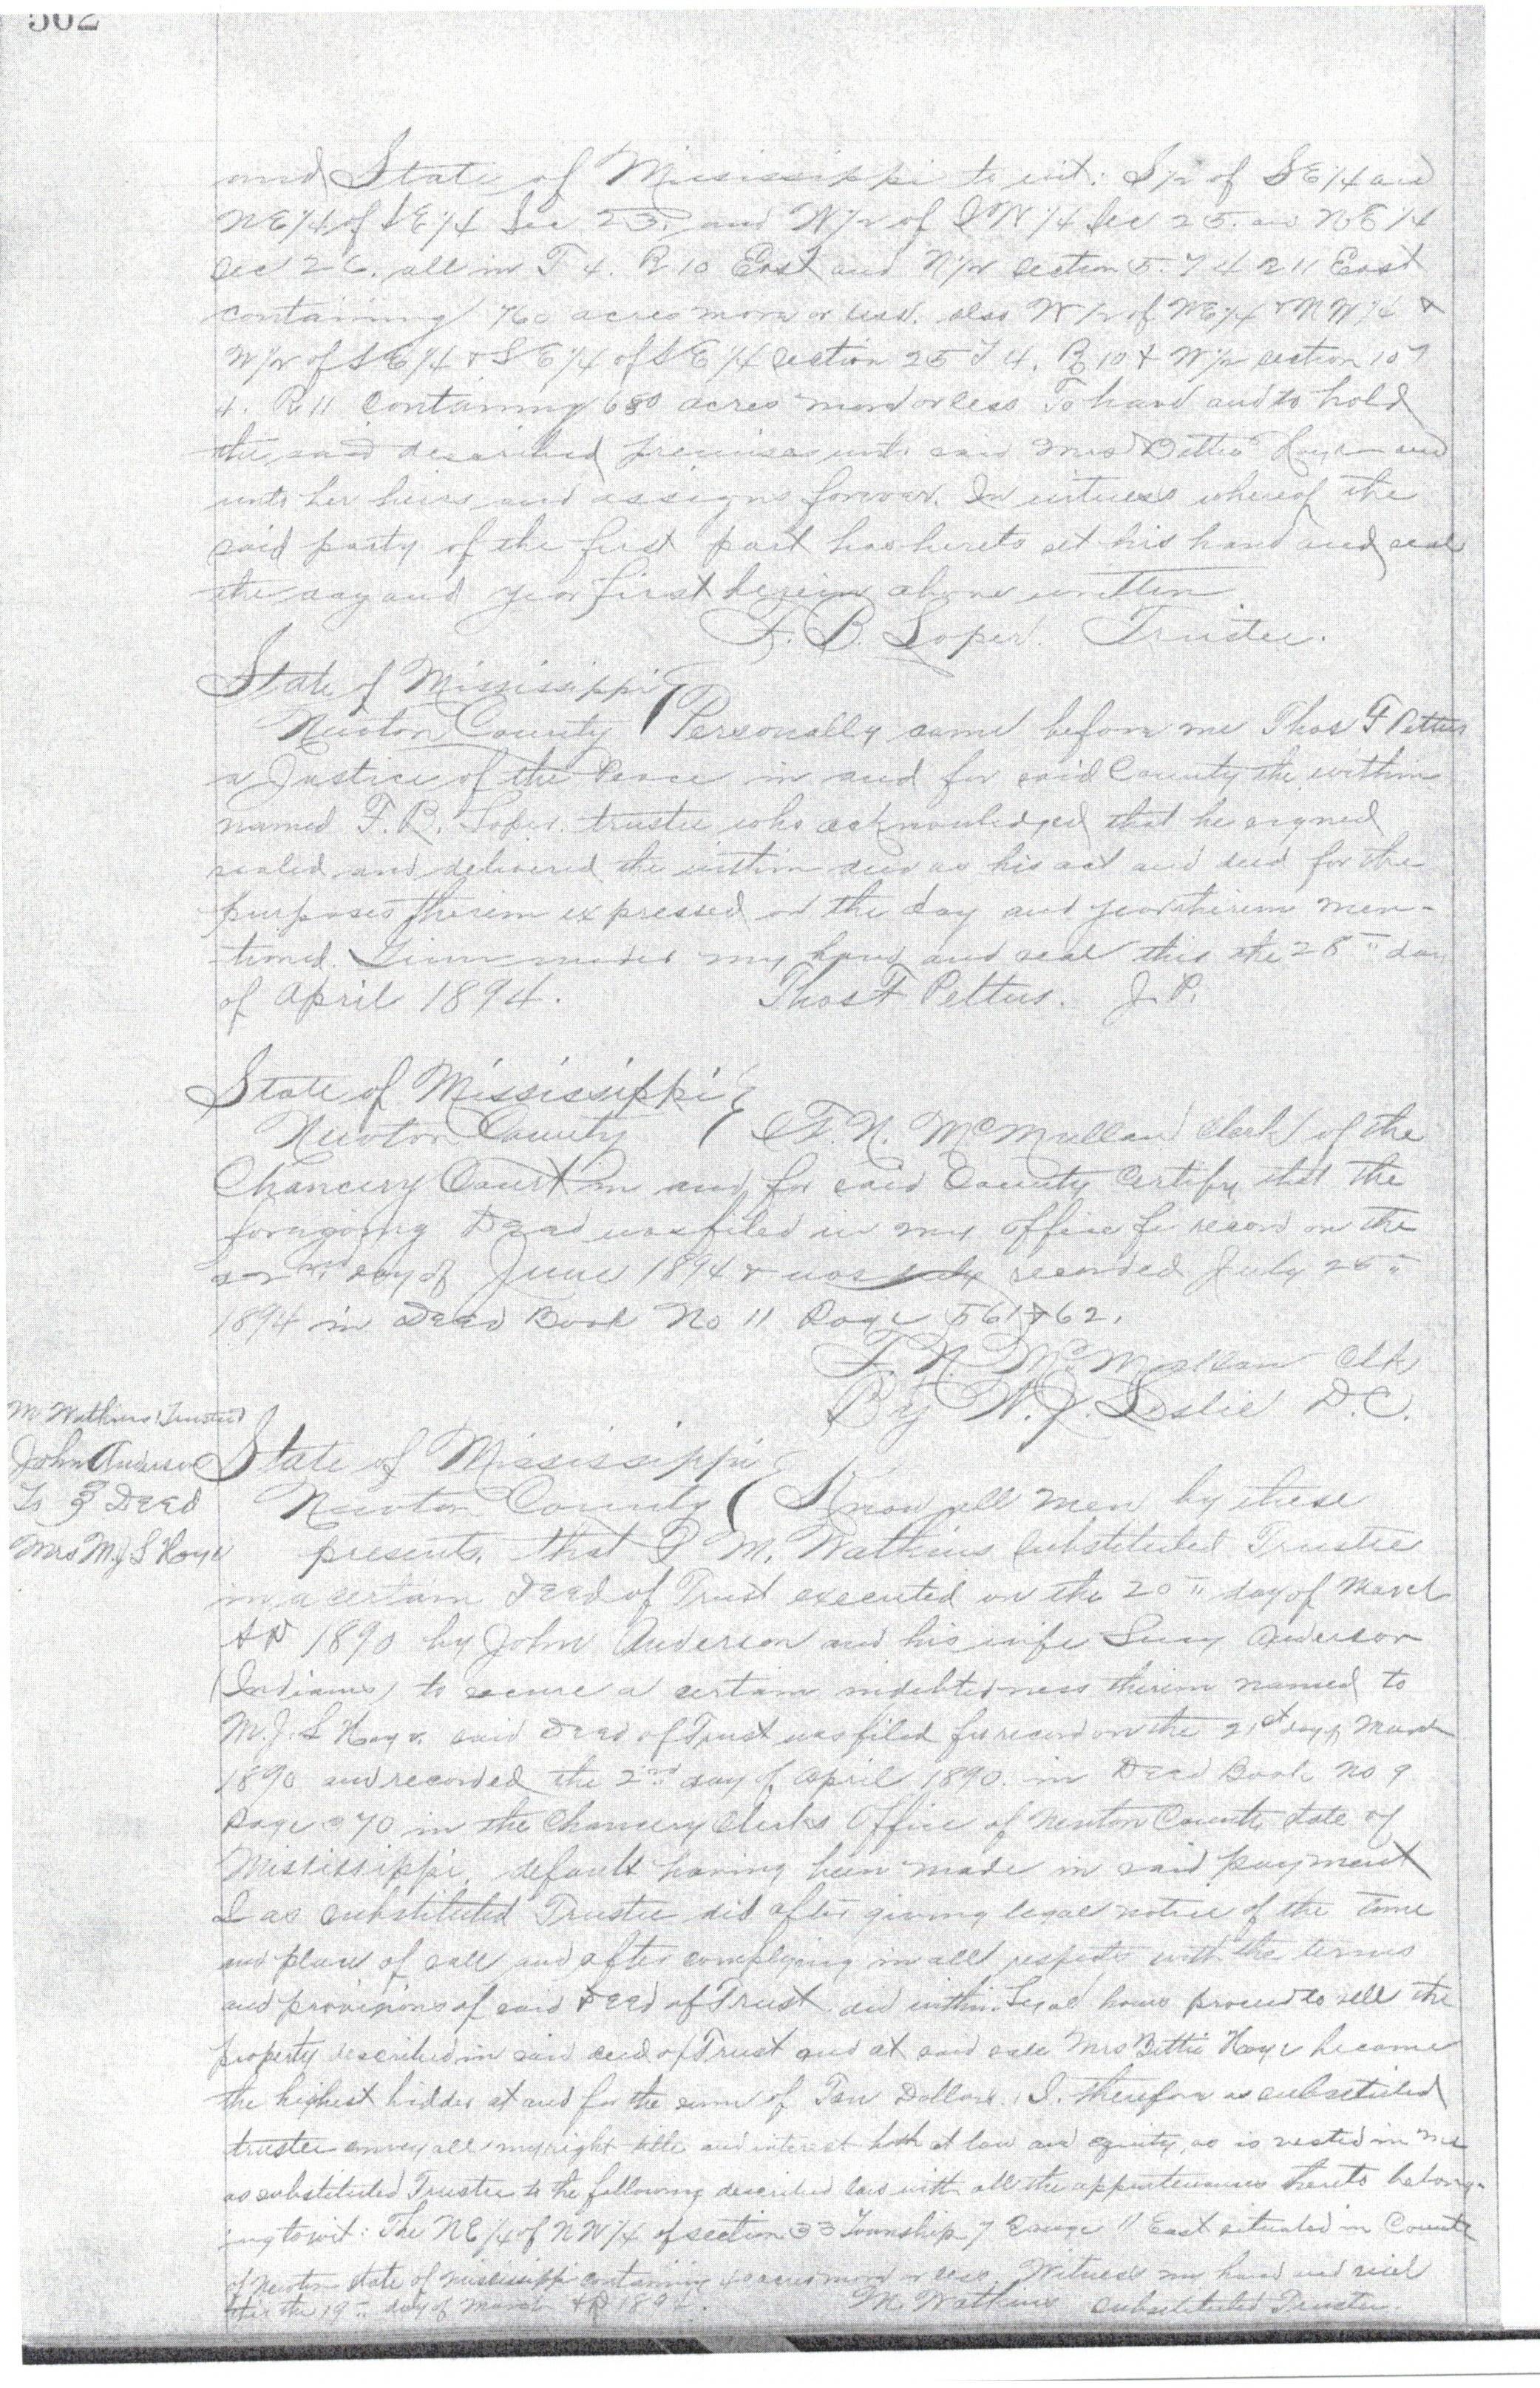 562
and State of Mississippi to wit: S/2 of SE 1/4 and
NE 1/4 of SE 1/4 Sec 23. and W/2 of SW 1/4 Sec 25. and NE 1/4
Sec 26. all in T 4. R 10 East and N/2 section 5. T 4 R 11 East
containing 760 acres more or less. also W/2 of NE 1/4 & NW 1/4 &
W/2 of SE 1/4 & SE 1/4 of SE 1/4 section 25 T 4. R 10 & W/2 section 10 T
4. R 11 containing 680 acres more or less To have and to hold
the said described premises unto said Mrs Bettie Hoye and
unto her heirs and assigns forever. In witness whereof the
said party of the first part has hereto set his hand and seal
the day and year first herein above written
F. B. Loper. Trustee.
State of Mississippi
Newton County Personally came before me Thos F Pettus
a Justice of the Peace in and for said County the within
named F. B. Loper. trustee who acknowledged that he signed
sealed and delivered the within deed as his act and deed for the
purposes therein expressed on the day and year therein men-
tioned. Given under my hand and seal this the 28" day
of April 1894. Thos F Pettus. J. P.
State of Mississippi
Newton County I F. N. McMullan Clerk of the
Chancery Court in and for said County certify that the
foregoing Deed was filed in my office for record on the
22nd day of June 1894 & was duly recorded July 25"
1894 in Deed Book No 11 Page 561 & 62.
F. N. McMullan Clk
By W. J. Leslie D. C.
M Watkins Trustee
John Anderson
To } Deed
Mrs M. J. S Hoye
State of Mississippi
Newton County Know all men by these
presents, that I M. Watkins substituted Trustee
in a certain Deed of Trust executed on the 20" day of March
AD 1890 by John Anderson and his wife Lucy Anderson
(Indians) to secure a certain indebtedness therein named to
M. J. L Hoye. said Deed of Trust was filed for record on the 21st day of March
1890 and recorded the 2nd day of April 1890. in Deed Book No 9
Page 370 in the Chancery Clerks Office of Newton County state of
Mississippi, default having been made in said payment
I as substituted Trustee did after giving legal notice of the time
and place of sale and after complying in all respects with the terms
and provisions of said Deed of Trust did within Legal hours proceed to sell the
property described in said deed of Trust and at said sale Mrs Bettie Hoye became
the highest bidder at and for the sum of Ten Dollars. I. therefore as substituted
trustee convey all my right title and interest both at law and equity, as is vested in me
as substituted Trustee to the following described land with all the appurtenances thereto belong-
ing to wit: The NE 1/4 of NW 1/4 of section 33 Township 7 Range 11 East situated in County
of Newton state of Mississippi containing 40 acres more or less. Witness my hand and seal
this the 19" day of March AD 1894. M Watkins substituted Trustee.